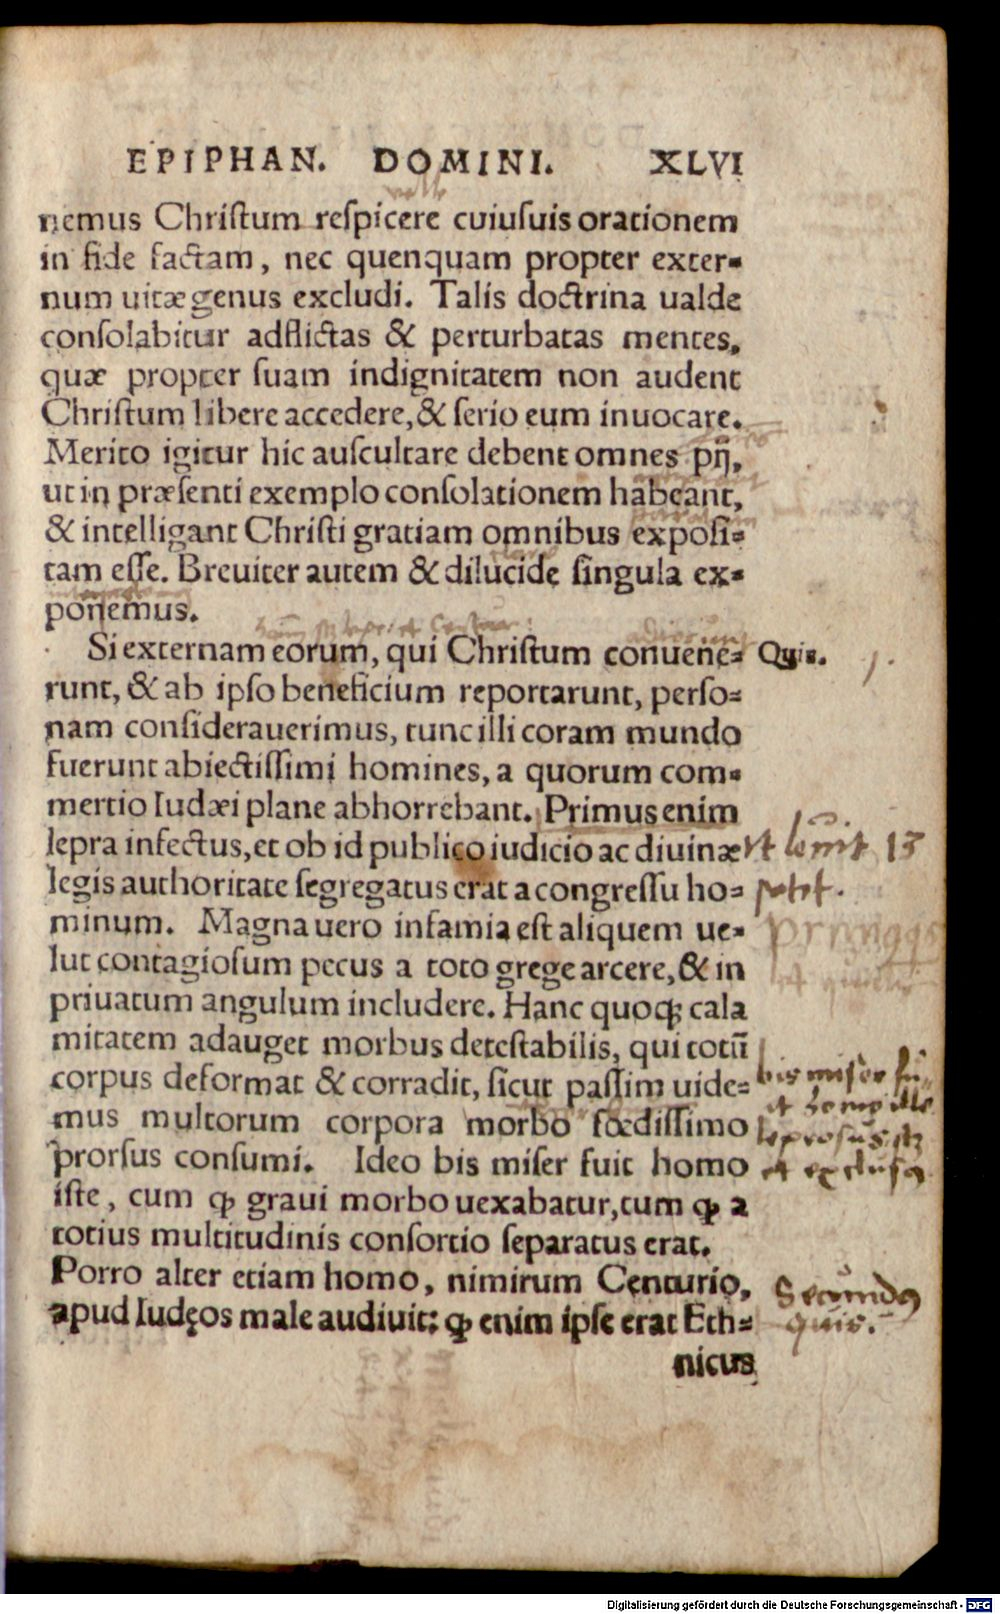 EPIPHAN. DOMINI. XLVI
nemus Christum respicere cuiusuis orationem
in fide factam, nec quenquam propter exter-
num uitæ genus excludi. Talis doctrina ualde
consolabitur adflictas & perturbatas mentes,
quæ propter suam indignitatem non audent
Christum libere accedere, & serio eum inuocare.
Merito igitur hic auscultare debent omnes pij,
ut in præsenti exemplo consolationem habeant,
& intelligant Christi gratiam omnibus exposi-
tam esse. Breuiter autem & dilucide singula ex-
ponemus.
Si externam eorum, qui Christum conuene- Quis. 1.
runt, & ab ipso beneficium reportarunt, perso-
nam considerauerimus, tunc illi coram mundo
fuerunt abiectissimi homines, a quorum com-
mertio Iudæi plane abhorrebant. Primus enim
lepra infectus, et ob id publico iudicio ac diuinæ Vt leuit 13
legis authoritate segregatus erat a congressu ho- patet.
minum. Magna uero infamia est aliquem ue-
lut contagiosum pecus a toto grege arcere, & in
priuatum angulum includere. Hanc quoq; cala
mitatem adauget morbus detestabilis, qui totū
corpus deformat & corradit, sicut passim uide- bis miser fu-
mus multorum corpora morbo fœdissimo leprosus
prorsus consumi. Ideo bis miser fuit homo et exclusus
iste, cum ꝙ graui morbo uexabatur, tum ꝙ a
totius multitudinis consortio separatus erat.
Porro alter etiam homo, nimirum Centurio, Secundus
apud Iudęos male audiuit: ꝙ enim ipse erat Eth- quis.
nicus
Digitalisierung gefördert durch die Deutsche Forschungsgemeinschaft - DFG